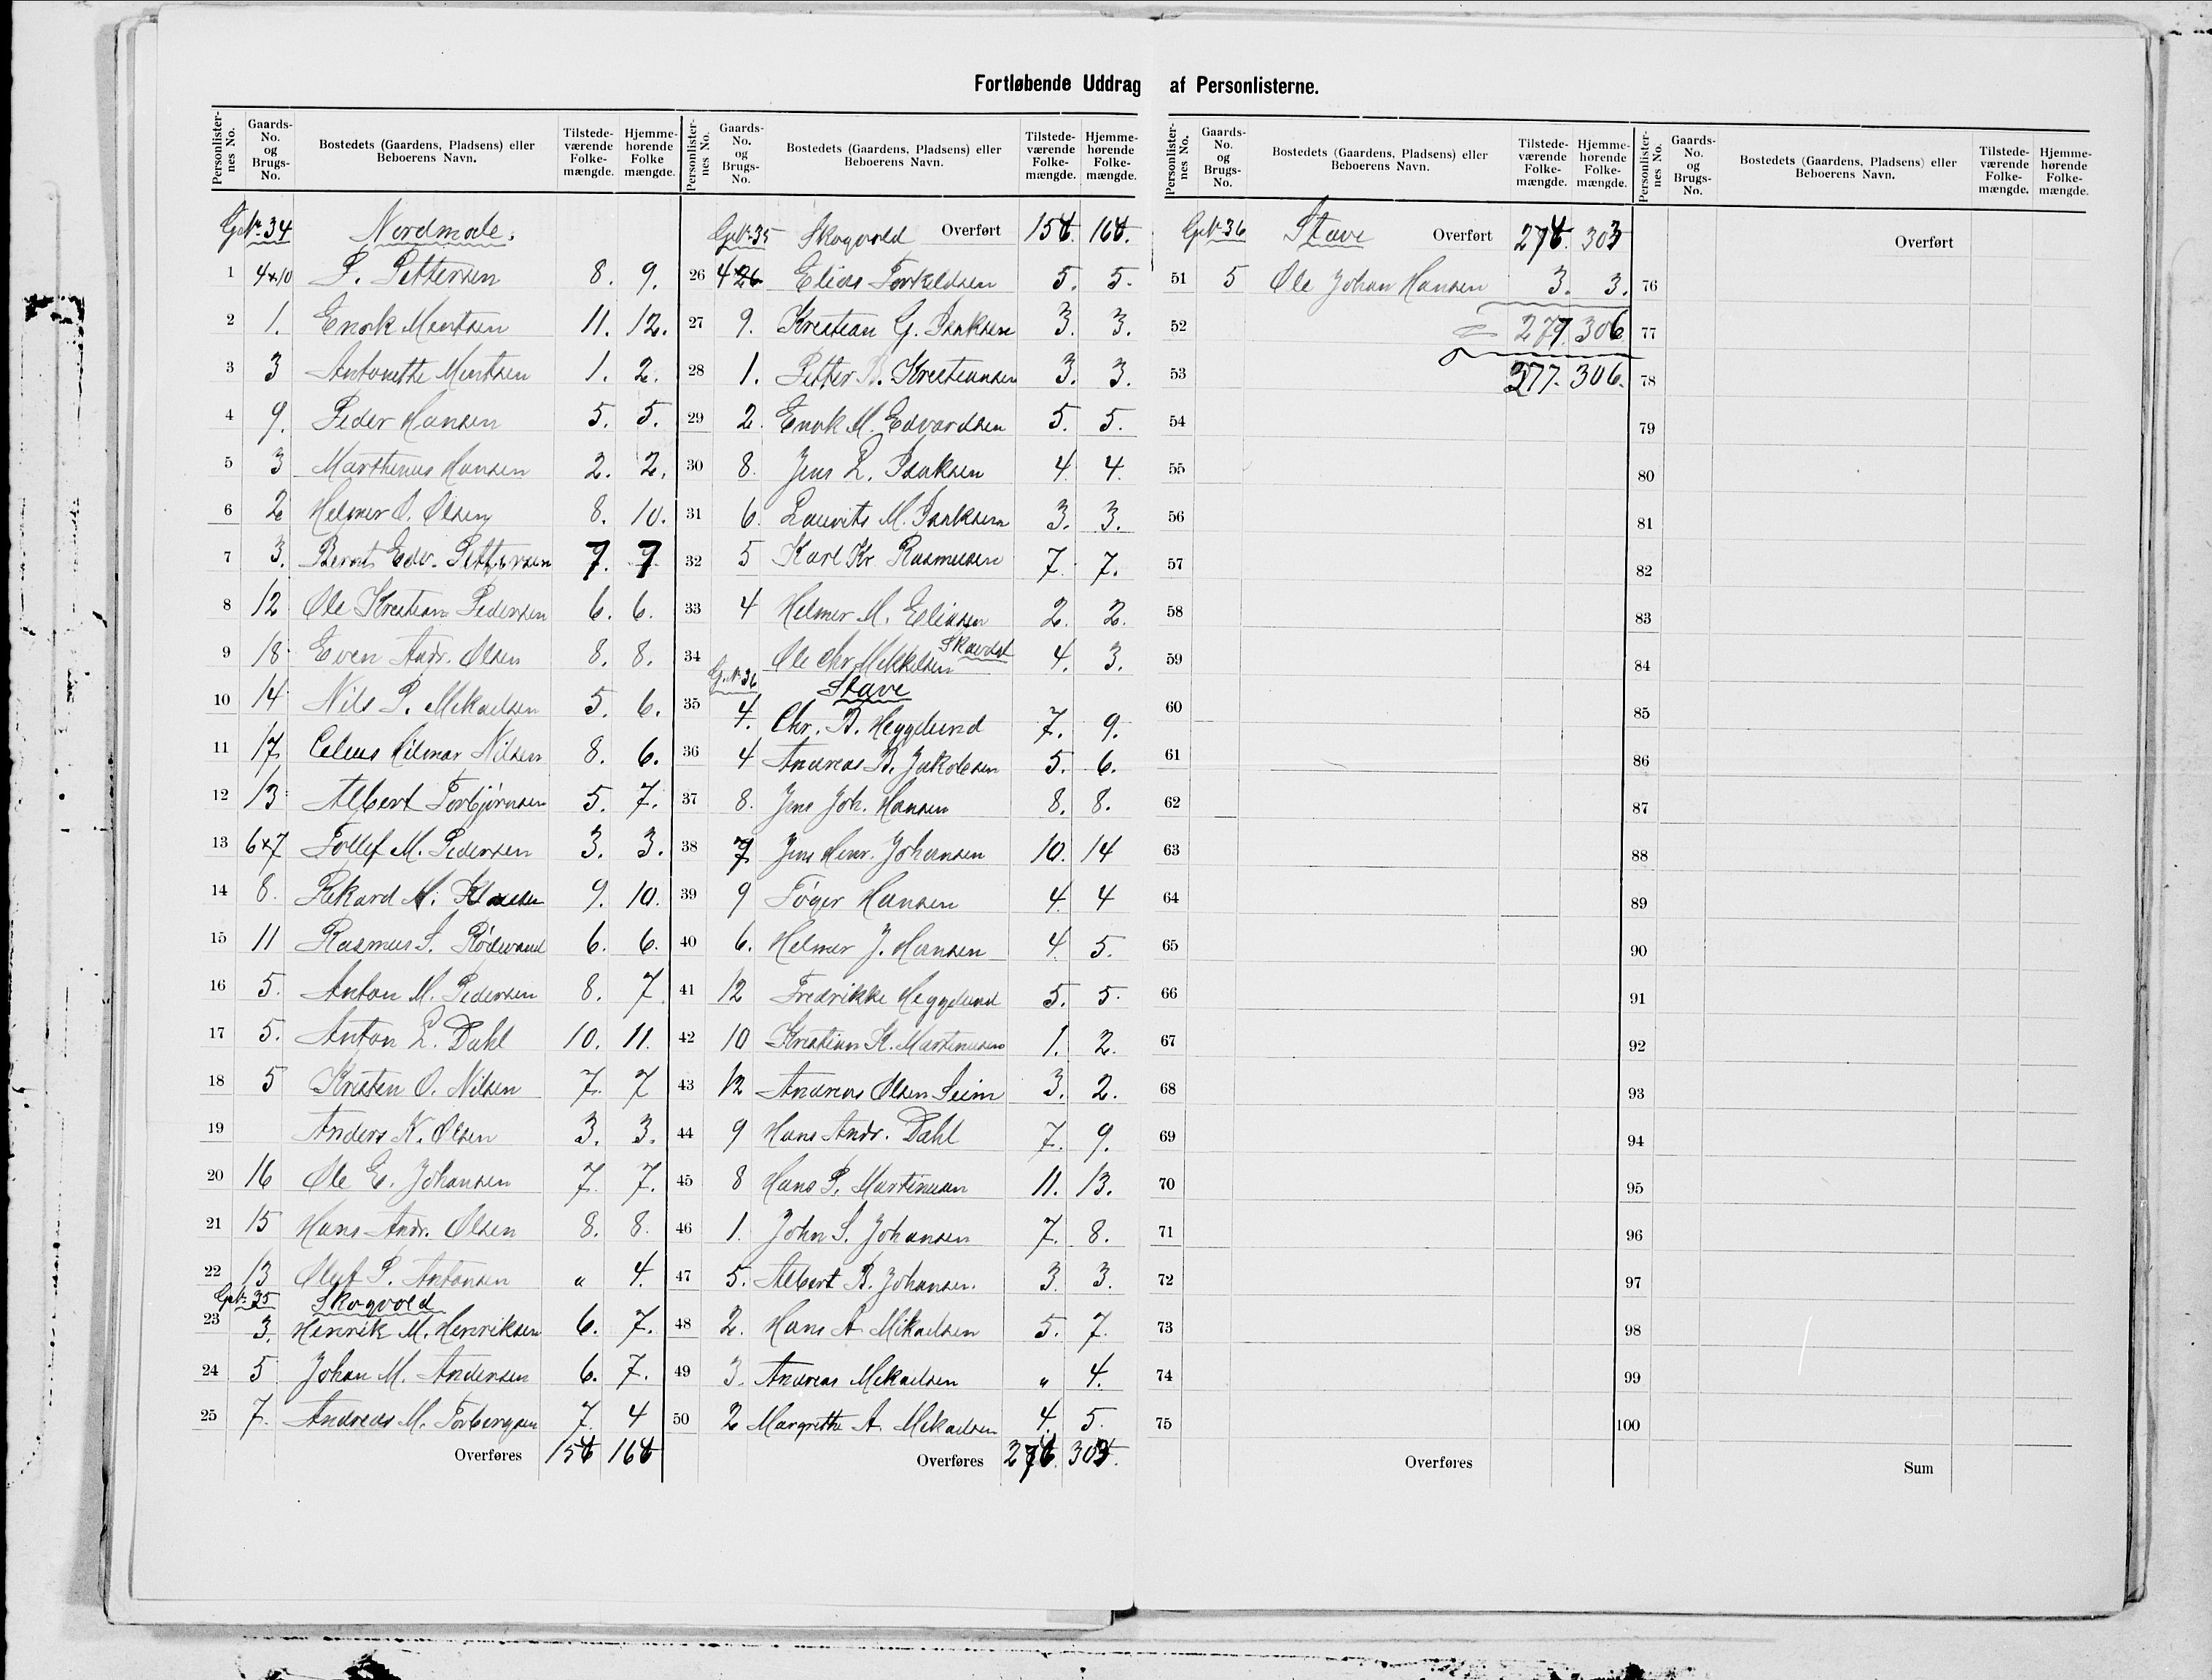 Fortløbende Uddrag af Personlisterne.
Personlisternes No. Gaards-No. og Brugs-No. Bostedets (Gaardens, Pladsens) eller Beboerens Navn. Tilstedeværende Folkemængde. Hjemmehørende Folkemængde.
G. Nr. 34 Nordmæle.
1 4 x 10 P. Pettersen 8. 9.
2 1. Enok Mentsen 11. 12.
3 3 Antonette Mentsen 1. 2.
4 9. Peder Hansen 5. 5.
5 3 Marthinus Hansen 2. 2.
6 2 Helmer O. Olsen 8. 10.
7 3. Bernt Edv. Pettersen 7. 7
8 12 Ole Kristian Pedersen 6. 6.
9 18 Even Andr. Olsen 8. 8.
10 14 Nils P. Mikaelsen 5. 6.
11 17 Hilmar Nilsen 8. 6.
12 13 Albert Torbjørnsen 5. 7.
13 6 x 7 Tollef M. Pedersen 3. 3.
14 8. Rikard 9. 10.
15 11 Rasmus S. 6. 6.
16 5. Anton M. Pedersen 8. 7
17 5. Anton L. Dahl 10. 11.
18 5 Kristen O. Nilsen 7. 7
19 Anders K. Olsen 3. 3.
20 16 Ole E. Johansen 7. 7.
21 15 Hans Andr. Olsen 8. 8.
22 13 Oluf P. Antonsen " 4.
G. Nr. 35 Skogvold
23 3. Henrik M. Henriksen 6. 7.
24 5 Johan M. Andersen 6. 7.
25 7. Andreas M. Torbergsen 7. 4
Overføres
Personlisternes No. Gaards-No. og Brugs-No. Bostedets (Gaardens, Pladsens) eller Beboerens Navn. Tilstedeværende Folkemængde. Hjemmehørende Folkemængde.
G. Nr. 35 Skogvold Overført
26 Elias Torkildsen 5. 5.
27 9. Kristian G. Isaksen 3. 3.
28 1. Petter B. Kristiansen 3. 3.
29 2. Enok M. Edvardsen 5. 5.
30 8. Jens L. Isaksen 4. 4.
31 6. Lauvits M. Isaksen 3. 3.
32 5 Karl Kr. Rasmussen 7. 7.
33 4 Helmer M. Eliasen 2. 2.
34 Ole Chr. Mikkelsen 4. 3.
G. Nr. 36 Stave
35 4. Chr. B. Heggelund 7. 9.
36 4 Andreas B. Jakobsen 5. 6.
37 8. Jens Joh. Hansen 8. 8.
38 7 Jens Henr. Johansen 10. 14
39 9 Tøger Hansen 4. 4
40 6. Helmer J. Hansen 4. 5.
41 12 Fredrikke Heggelund 5. 5.
42 10 Kristian K. Martinusen 1. 2.
43 12 Andreas Olsen Seim 3. 2.
44 9 Hans Andr. Dahl 7. 9.
45 8 Hans P. Martinusen 11. 13.
46 1. John S. Johansen 7. 8.
47 5. Albert B. Johansen. 3. 3.
48 2. Hans A. Mikaelsen 5. 7.
49 3. Andreas Mikaelsen " 4.
50 2 Margrethe A. Mikaelsen 4. 5.
Overføres
Personlisternes No. Gaards-No. og Brugs-No. Bostedets (Gaardens, Pladsens) eller Beboerens Navn. Tilstedeværende Folkemængde. Hjemmehørende Folkemængde.
G. Nr. 36 Stave Overført 303
51 5 Ole Johan Hansen 3. 3.
52 277. 306
53 277. 306.
54
55
56
57
58
59
60
61
62
63
64
65
66
67
68
69
70
71
72
73
74
75
Overføres
Personlisternes No. Gaards-No. og Brugs-No. Bostedets (Gaardens, Pladsens) eller Beboerens Navn. Tilstedeværende Folkemængde. Hjemmehørende Folkemængde.
Overført
76
77
78
79
80
81
82
83
84
85
86
87
88
89
90
91
92
93
94
95
96
97
98
99
100
Sum